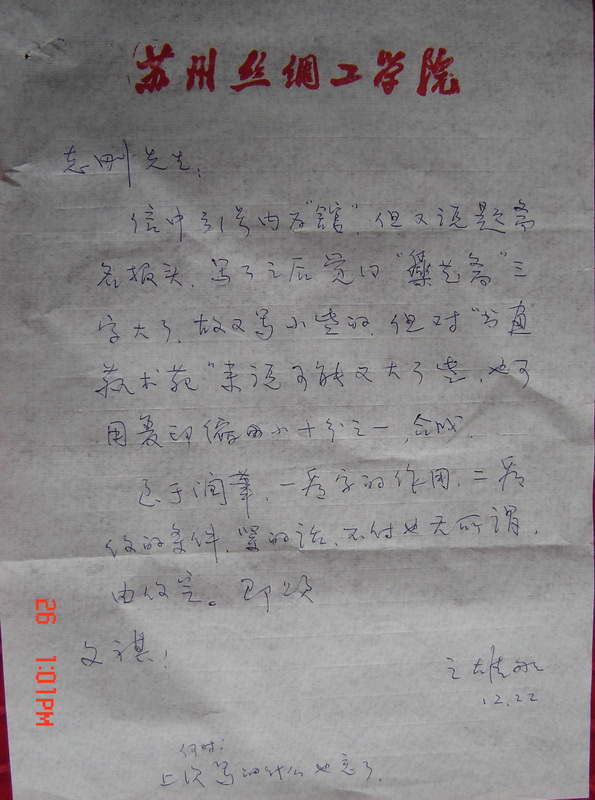 苏州丝绸工学院
志刚先生：
信中引号内为“馆”，但又说题斋
名报头，写了之后觉得“艺斋”三
字大了，故又写小些的，但对“书画
艺术苑”来说可能又大了些，也可
用复印缩小十分之一，合成。
至于润笔，一看字的作用，二看
你的条件，紧的话，不付也无所谓，
由你定。即颂
文祺！
12.22
何时：
上次写的什么也忘了。
26 1:01PM